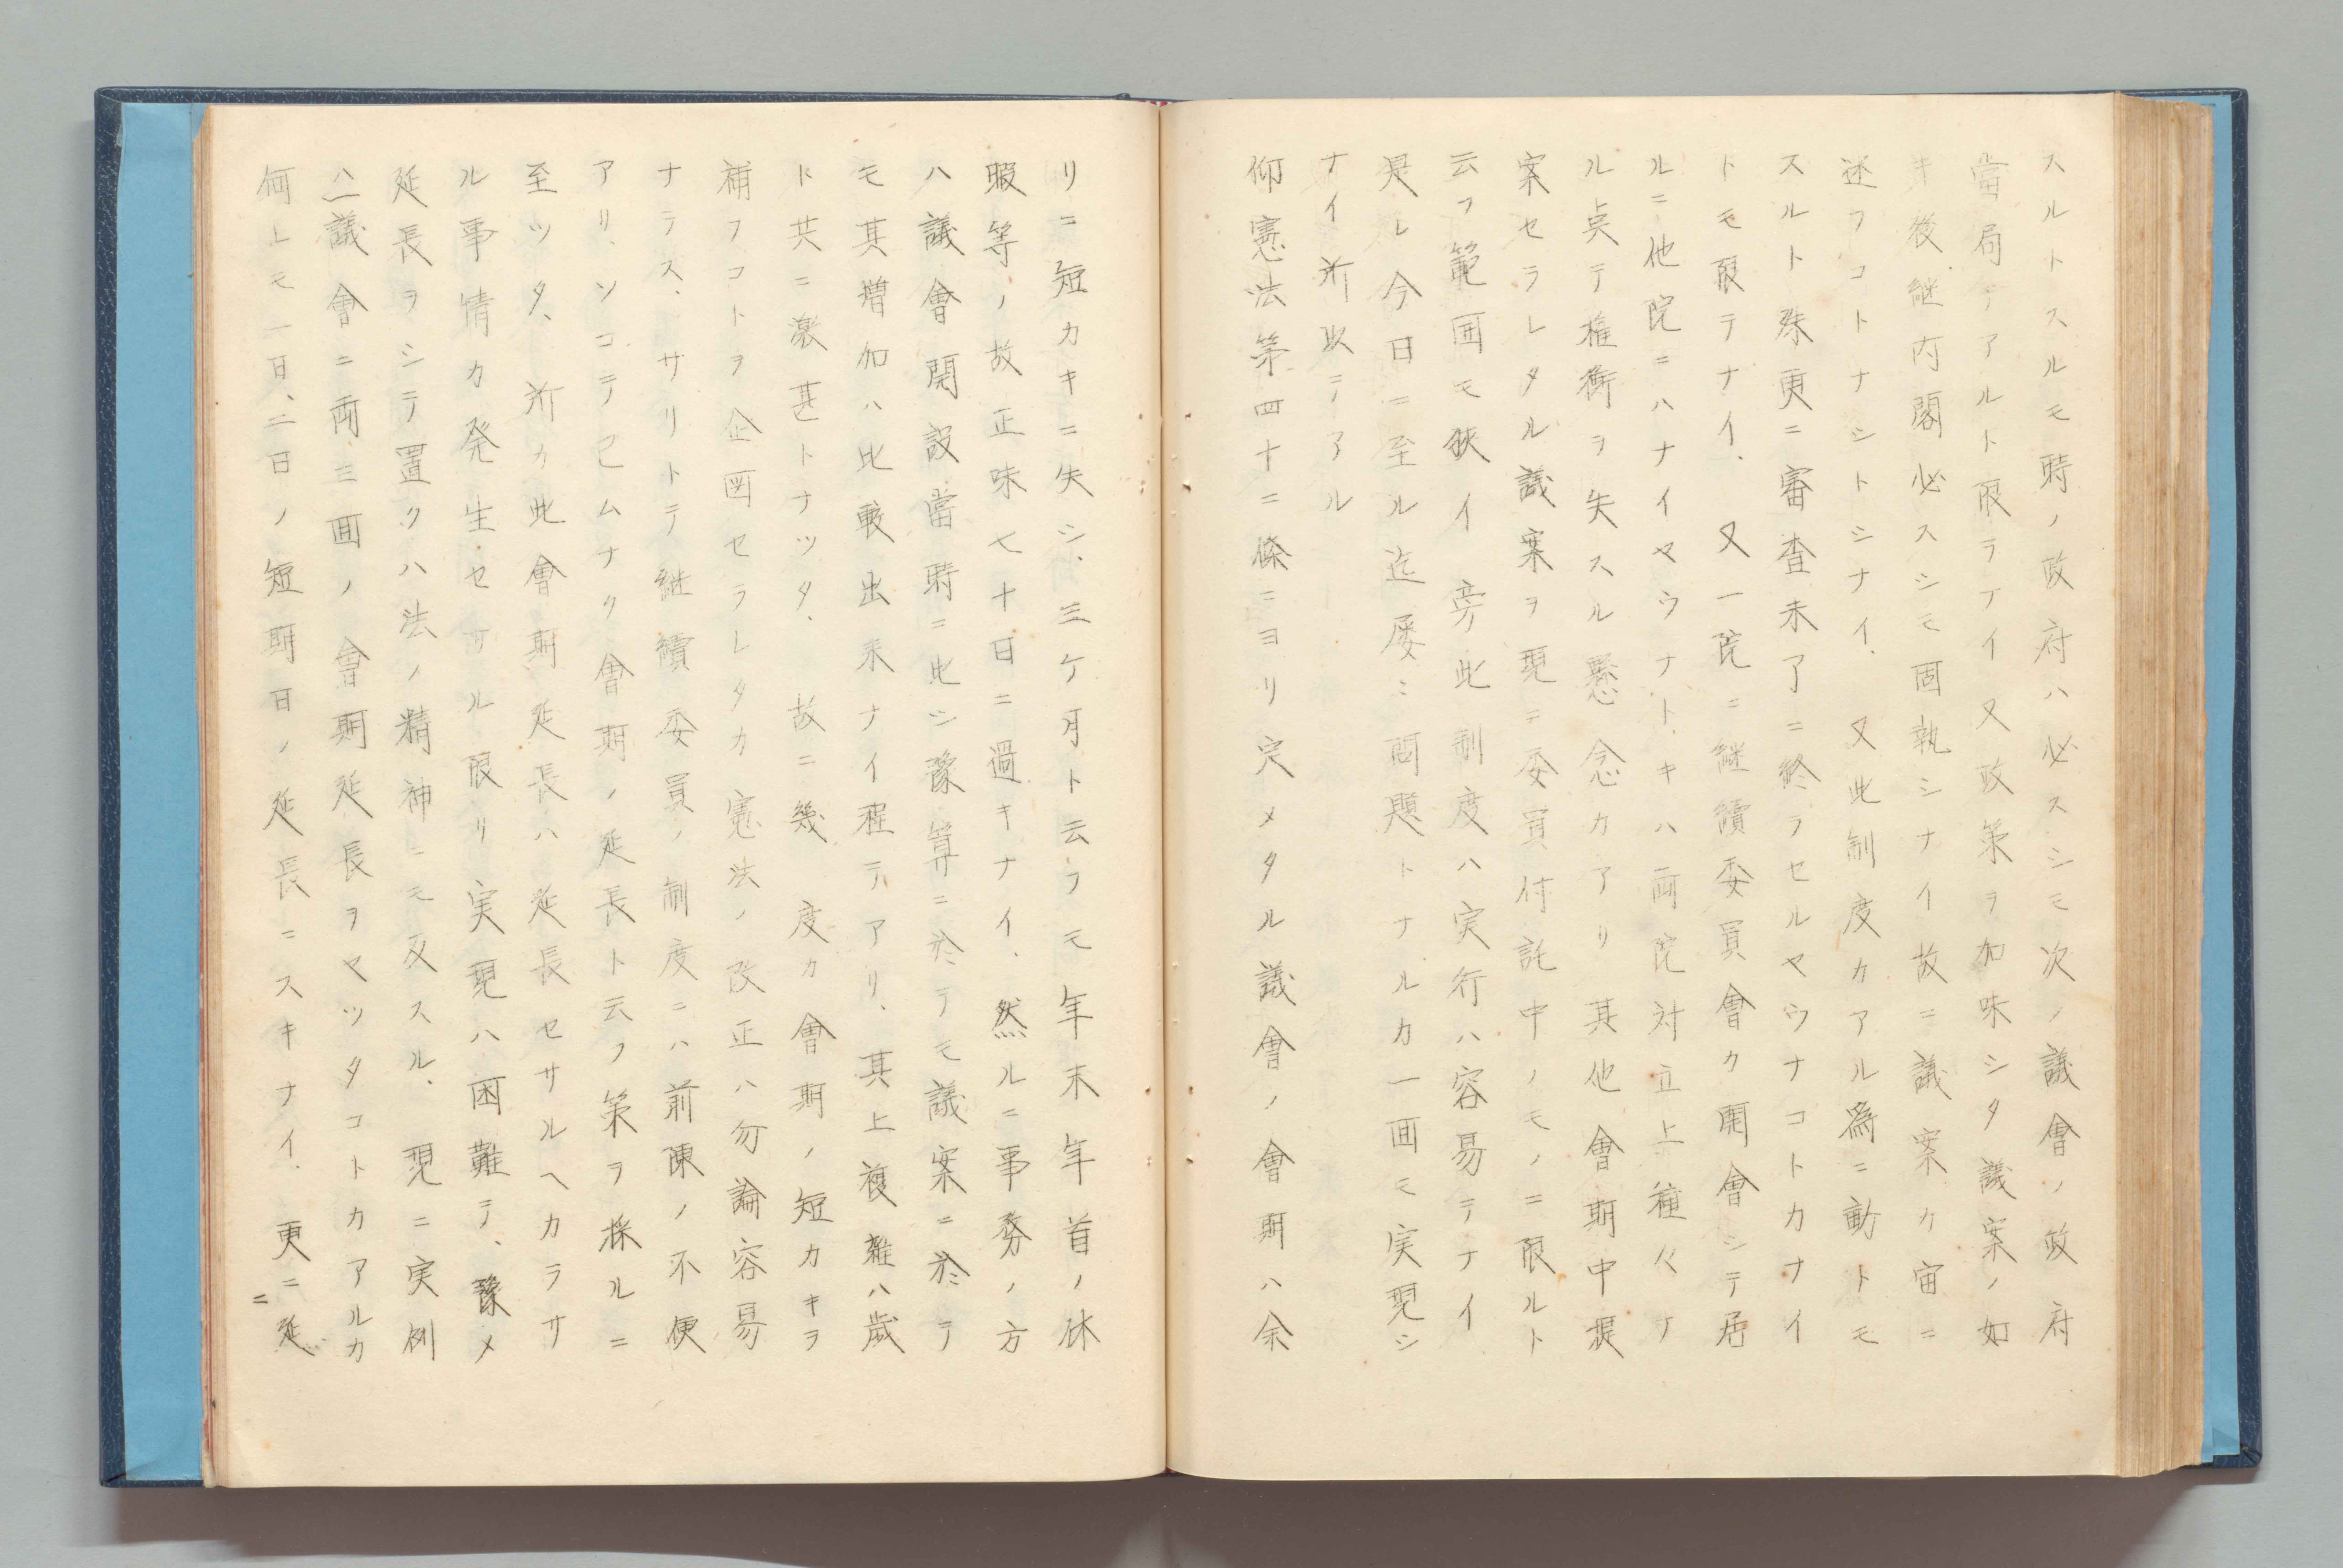 スルトスルモ時ノ政府ハ必スシモ次ノ議會ノ政府
當局テアルト限ラナイ又政策ヲ加味シタ議案ノ如
キ後継内閣必スシモ固執シナイ故ニ議案カ宙ニ
迷フコトナシトシナイ、又此制度カアル為ニ動トモ
スルト殊更ニ審査未了ニ終ラセルヤウナコトカナイ
トモ限テナイ、又一院ニ継續委員會ク開會シテ居
ルニ他院ニハナイヤウナトキハ両院対立上種々ナ
ル奌テ権衡ヲ失スル懸念カアリ其他會期中提
案セラレタル議案ヲ現ニ委員付託中ノモノニ限ルト
云フ範囲モ狭イ旁此制度ハ実行ハ容易テナイ
是レ今日ニ至ル迄屡〻問題トナルカ一囬モ実現シ
ナイ所以テアル
仰憲法第四十二條ニヨリ定メタル議會ノ會期ハ余
リニ短カキニ失シ、三ケ月ト云フモ年末年首ノ休
暇等ノ故正味七十日ニ過キナイ、然ルニ事務ノ方
ハ議會開設當時ニ比シ豫算ニ於テモ議案ニ於テ
モ其増加ハ比較出来ナイ程テアリ、其上複雑ハ歳
ト共ニ激甚トナツタ、故ニ幾度カ會期ノ短カキヲ
補フコトヲ企図セラレタカ憲法ノ改正ハ勿論容易
ナラス、サリトテ継續委員ノ制度ニハ前陳ノ不便
アリ、ソコテ已ムナク會期ノ延長ト云フ策ヲ採ルニ
至ツタ、所カ此會期延長ハ延長セサルヘカラサ
ル事情カ発生セサル限リ実現ハ困難テ、豫メ
延長ヲシテ置クハ法ノ精神ニモ反スル、現ニ実例
ハ一議會ニ両三囬ノ會期延長ヲヤツタコトカアルカ
何レモ一日、二日ノ短期日ノ延長ニスキナイ、更ニ延